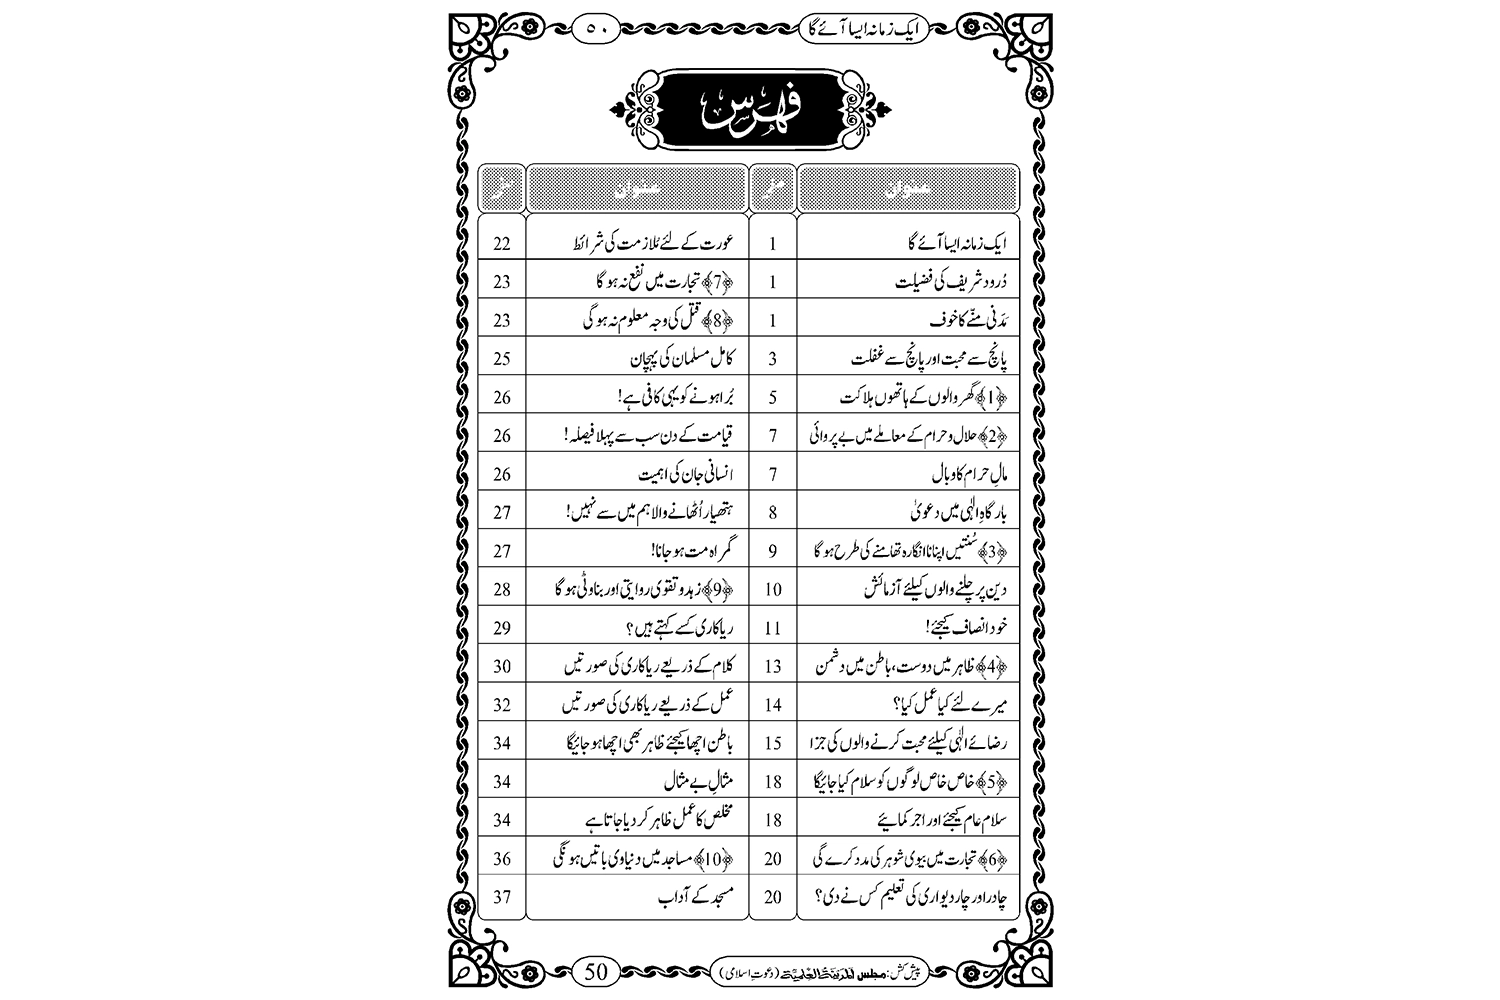 ایک زمانہ ایسا آئے گا
٥٠
فہرس
عنوان
عنوان
ایک زمانہ ایسا آئے گا 1
دُرود شریف کی فضیلت 1
مَدَنی مُنّے کا خوف 1
پانچ سے محبت اور پانچ سے غفلت 3
﴿1﴾ گھر والوں کے ہاتھوں ہلاکت 5
﴿2﴾ حلال و حرام کے معاملے میں بے پروائی 7
مالِ حرام کا وبال 7
بارگاہِ الٰہی میں دعویٰ 8
﴿3﴾ سُنتیں اپنانا انگارہ تھامنے کی طرح ہوگا 9
دین پر چلنے والوں کیلئے آزمائش 10
خود انصاف کیجئے! 11
﴿4﴾ ظاہر میں دوست، باطن میں دشمن 13
میرے لئے کیا عمل کیا؟ 14
رضائے الٰہی کیلئے محبت کرنے والوں کی جزا 15
﴿5﴾ خاص خاص لوگوں کو سلام کیا جائیگا 18
سلام عام کیجئے اور اجر کمائیے 18
﴿6﴾ تجارت میں بیوی شوہر کی مدد کرے گی 20
چادر اور چار دیواری کی تعلیم کس نے دی؟ 20
عورت کے لئے مُلازمت کی شرائط 22
﴿7﴾ تجارت میں نفع نہ ہوگا 23
﴿8﴾ قتل کی وجہ معلوم نہ ہوگی 23
کامل مسلمان کی پہچان 25
بُرا ہونے کو یہی کافی ہے! 26
قیامت کے دن سب سے پہلا فیصلہ! 26
انسانی جان کی اہمیت 26
ہتھیار اُٹھانے والا ہم میں سے نہیں! 27
گمراہ مت ہو جانا! 27
﴿9﴾ زہد و تقوی روایتی اور بناوٹی ہوگا 28
ریاکاری کسے کہتے ہیں؟ 29
کلام کے ذریعے ریاکاری کی صورتیں 30
عمل کے ذریعے ریاکاری کی صورتیں 32
باطن اچھا کیجئے ظاہر بھی اچھا ہو جائیگا 34
مثالِ بے مثال 34
مخلص کا عمل ظاہر کر دیا جاتا ہے 34
﴿10﴾ مساجد میں دنیاوی باتیں ہونگی 36
مسجد کے آداب 37
پیش کش: مجلس المدینۃ العلمیۃ (دعوتِ اسلامی)
50